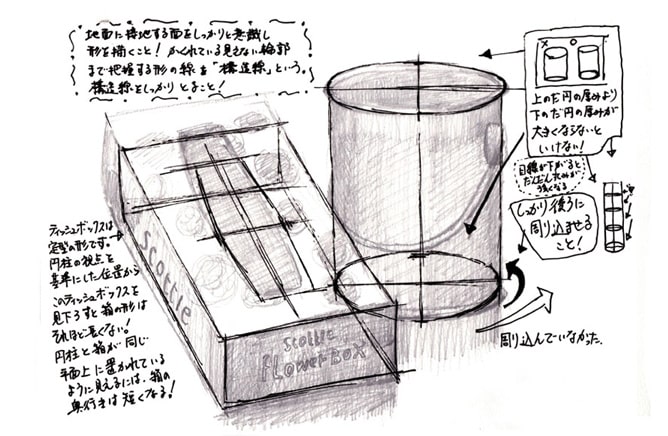 地面に接地する面をしっかりと意識し
形を描くこと! かくれている見えない輪郭
まで把握する形の線を「構造線」という。
構造線をしっかりとること!
上のだ円の厚みより
下のだ円の厚みが
大きくならないと
いけない!
目線が下がると
だ円の厚みが
しっかり後ろに
周り込ませる
こと!
周り込んでいなかった.
ティッシュボックスは
定型の形です。
円柱の視点を
基準にした位置から
このティッシュボックスを
見下ろすと箱の形は
それほど長くない!
円柱と箱が同じ
平面上に置かれている
ように見えるには、箱の
奥行きは短くなる!
scottie
scottie
flowerbox